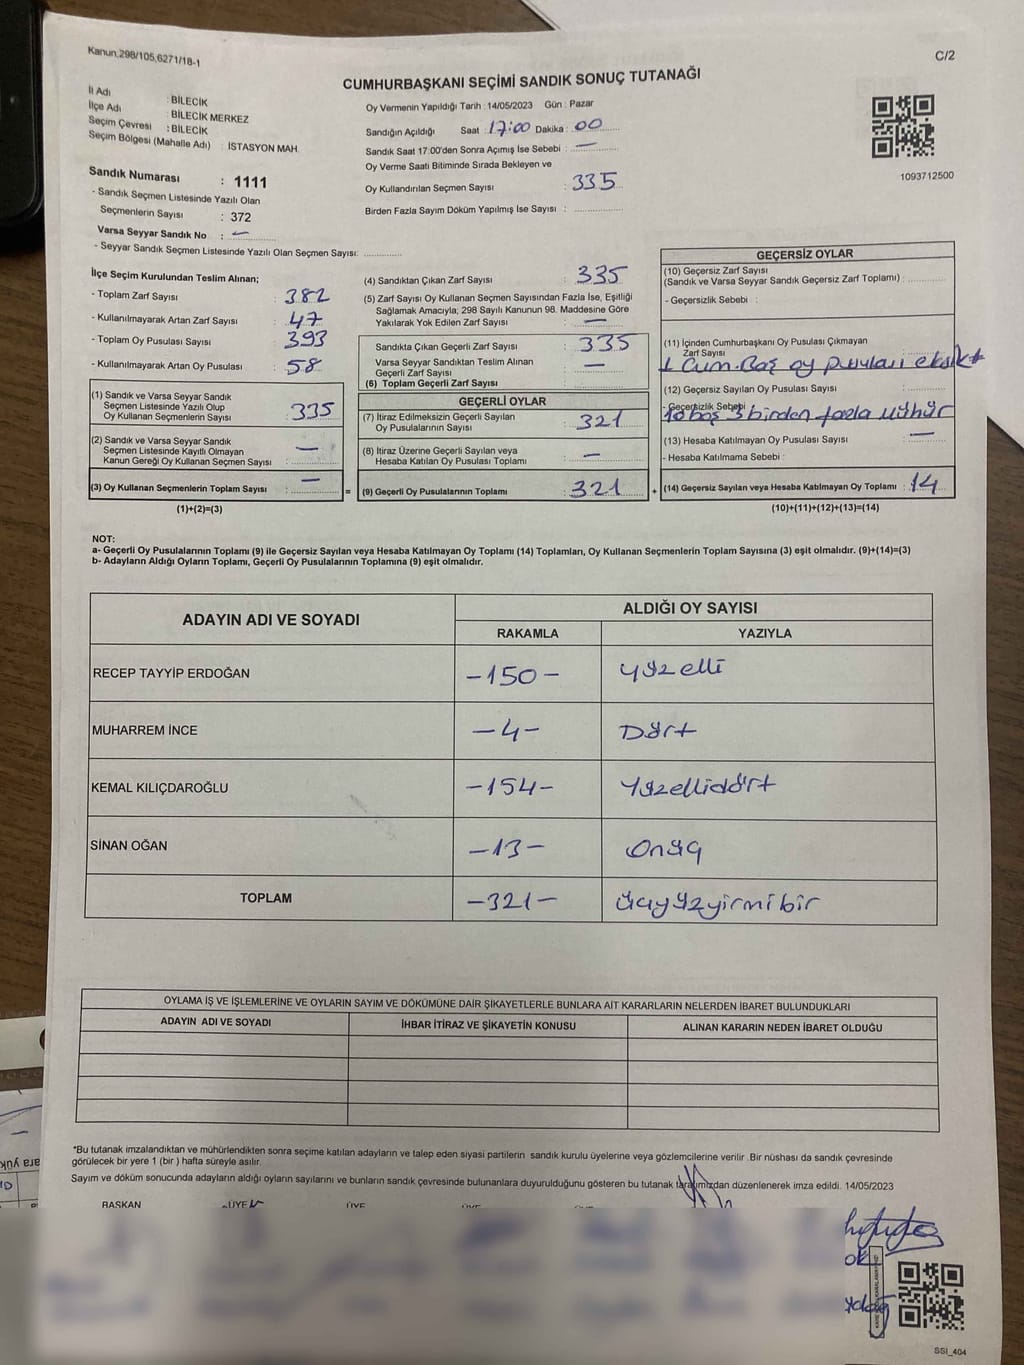 Kanun,298/105,6271/18-1
C/2
CUMHURBAŞKANI SEÇİMİ SANDIK SONUÇ TUTANAĞI
İl Adı : BİLECİK
İlçe Adı : BİLECİK MERKEZ
Seçim Çevresi : BİLECİK
Seçim Bölgesi (Mahalle Adı) : İSTASYON MAH.
Oy Vermenin Yapıldığı Tarih : 14/05/2023 Gün : Pazar
Sandığın Açıldığı Saat : 17:00 Dakika : 00
Sandık Saat 17:00'den Sonra Açımış İse Sebebi : —
Oy Verme Saati Bitiminde Sırada Bekleyen ve
Oy Kullandırılan Seçmen Sayısı : 335
Birden Fazla Sayım Döküm Yapılmış İse Sayısı :
1093712500
Sandık Numarası : 1111
- Sandık Seçmen Listesinde Yazılı Olan
Seçmenlerin Sayısı : 372
Varsa Seyyar Sandık No : —
- Seyyar Sandık Seçmen Listesinde Yazılı Olan Seçmen Sayısı:
İlçe Seçim Kurulundan Teslim Alınan;
- Toplam Zarf Sayısı : 382
- Kullanılmayarak Artan Zarf Sayısı : 47
- Toplam Oy Pusulası Sayısı : 393
- Kullanılmayarak Artan Oy Pusulası : 58
(1) Sandık ve Varsa Seyyar Sandık
Seçmen Listesinde Yazılı Olup
Oy Kullanan Seçmenlerin Sayısı : 335
(2) Sandık ve Varsa Seyyar Sandık
Seçmen Listesinde Kayıtlı Olmayan
Kanun Gereği Oy Kullanan Seçmen Sayısı : —
(3) Oy Kullanan Seçmenlerin Toplam Sayısı : —
(1)+(2)=(3)
(4) Sandıktan Çıkan Zarf Sayısı : 335
(5) Zarf Sayısı Oy Kullanan Seçmen Sayısından Fazla İse, Eşitliği
Sağlamak Amacıyla; 298 Sayılı Kanunun 98. Maddesine Göre
Yakılarak Yok Edilen Zarf Sayısı : —
Sandıkta Çıkan Geçerli Zarf Sayısı : 335
Varsa Seyyar Sandıktan Teslim Alınan
Geçerli Zarf Sayısı : —
(6) Toplam Geçerli Zarf Sayısı :
GEÇERLİ OYLAR
(7) İtiraz Edilmeksizin Geçerli Sayılan
Oy Pusulalarının Sayısı : 321
(8) İtiraz Üzerine Geçerli Sayılan veya
Hesaba Katılan Oy Pusulası Toplamı : —
= (9) Geçerli Oy Pusulalarının Toplamı : 321 +
GEÇERSİZ OYLAR
(10) Geçersiz Zarf Sayısı
(Sandık ve Varsa Seyyar Sandık Geçersiz Zarf Toplamı) :
- Geçersizlik Sebebi :
(11) İçinden Cumhurbaşkanı Oy Pusulası Çıkmayan
Zarf Sayısı :
1 Cum.Baş oy pusulası eksik
(12) Geçersiz Sayılan Oy Pusulası Sayısı :
- Geçersizlik Sebebi :
10 boş 3 birden fazla mühür
(13) Hesaba Katılmayan Oy Pusulası Sayısı : —
- Hesaba Katılmama Sebebi :
(14) Geçersiz Sayılan veya Hesaba Katılmayan Oy Toplamı : 14
(10)+(11)+(12)+(13)=(14)
NOT:
a- Geçerli Oy Pusulalarının Toplamı (9) ile Geçersiz Sayılan veya Hesaba Katılmayan Oy Toplamı (14) Toplamları, Oy Kullanan Seçmenlerin Toplam Sayısına (3) eşit olmalıdır. (9)+(14)=(3)
b- Adayların Aldığı Oyların Toplamı, Geçerli Oy Pusulalarının Toplamına (9) eşit olmalıdır.
ADAYIN ADI VE SOYADI
ALDIĞI OY SAYISI
RAKAMLA YAZIYLA
RECEP TAYYİP ERDOĞAN -150- yüzelli
MUHARREM İNCE -4- Dört
KEMAL KILIÇDAROĞLU -154- Yüzellidört
SİNAN OĞAN -13- onüç
TOPLAM -321- üçyüzyirmibir
OYLAMA İŞ VE İŞLEMLERİNE VE OYLARIN SAYIM VE DÖKÜMÜNE DAİR ŞİKAYETLERLE BUNLARA AİT KARARLARIN NELERDEN İBARET BULUNDUKLARI
ADAYIN ADI VE SOYADI İHBAR İTİRAZ VE ŞİKAYETİN KONUSU ALINAN KARARIN NEDEN İBARET OLDUĞU
*Bu tutanak imzalandıktan ve mühürlendikten sonra seçime katılan adayların ve talep eden siyasi partilerin sandık kurulu üyelerine veya gözlemcilerine verilir .Bir nüshası da sandık çevresinde
görülecek bir yere 1 (bir ) hafta süreyle asılır.
Sayım ve döküm sonucunda adayların aldığı oyların sayılarını ve bunların sandık çevresinde bulunanlara duyurulduğunu gösteren bu tutanak tarafımızdan düzenlenerek imza edildi. 14/05/2023
BAŞKAN ÜYE ÜYE
SSI_404